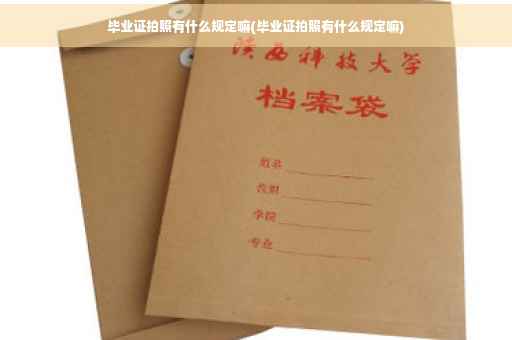 毕业证拍照有什么规定嘛(毕业证拍照有什么规定嘛)
陕西科技大学
档案袋
姓名
学院
专业